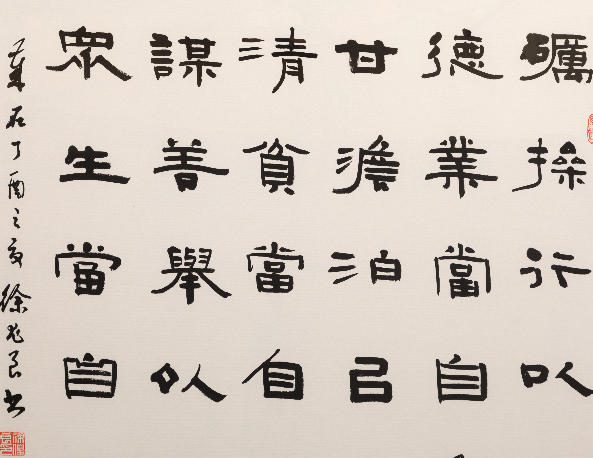 礪操行以
德業當自
甘澹泊己
清貧當自
謀善舉以
眾生當自
石丁酉之 徐 良书